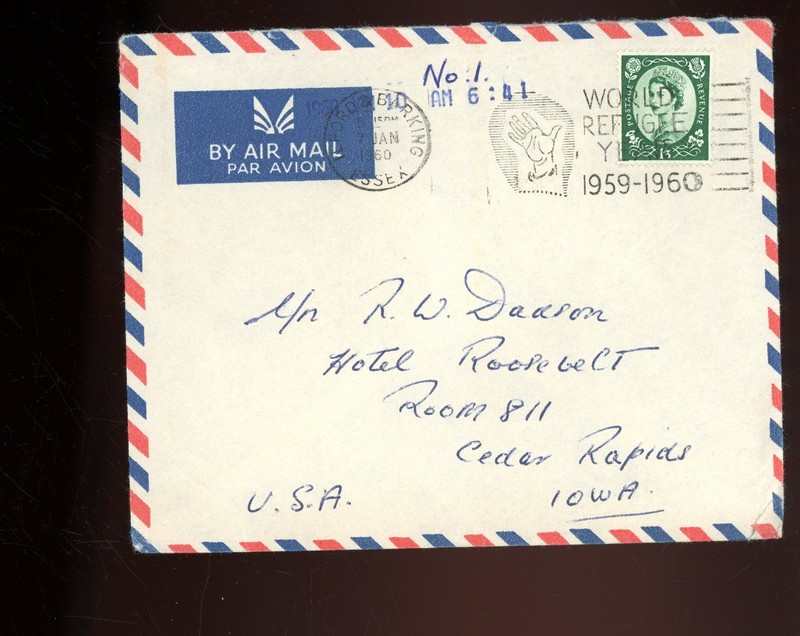 No. 1.
1960 JAN 10 AM 6:41
BY AIR MAIL
PAR AVION
ILFORD & BARKING
7 JAN
1960
ESSEX
WORLD
REFUGEE
YEAR
1959-1960
POSTAGE
REVENUE
1/3
Mr R. W. Dawson
Hotel Roosevelt
Room 811
Cedar Rapids
U.S.A.
IOWA.